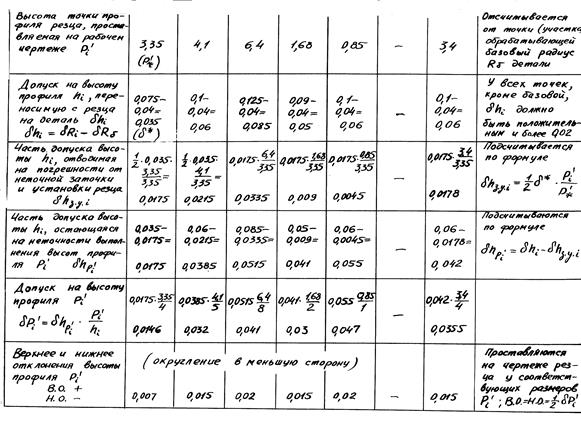 Высота точки про-
филя резца, простав-
ляемая на рабочем
чертеже Pi'
3,35
(Pк')
4,1
6,4
1,68
0,85
—
3,4
Отсчитывается
от точки (участка),
обрабатывающей
базовый радиус
Rб детали
Допуск на высоту
профиля hi, пере-
носимую с резца
на деталь δhi
δhi = δRi - δRб
0,075-
0,04=
0,035
(δ*)
0,1-
0,04=
0,06
0,125-
0,04=
0,085
0,09-
0,04=
0,05
0,1-
0,04=
0,06
—
0,1-
0,04=
0,06
У всех точек,
кроме базовой,
δhi должно
быть положитель-
ным и более 0,02
Часть допуска высо-
ты hi, отводимая
на погрешности от
неточной заточки
и установки резца
δhз.у.i
1/2·0,035·
3,35/3,35=
0,0175
1/2·0,035·
4,1/3,35=
0,0215
0,0175·6,4/3,35
0,0335
0,0175·1,68/3,35
0,009
0,0175·0,85/3,35
0,0045
—
0,0175·3,4/3,35
0,0178
Подсчитывается
по формуле
δhз.у.i = 1/2 δ*·Pi'/Pк'
Часть допуска высо-
ты hi, остающаяся
на неточности выпол-
нения высот профи-
ля Pi' δhPi'
0,035-
0,0175=
0,0175
0,06-
0,0215=
0,0385
0,085-
0,0335=
0,0515
0,05-
0,009=
0,041
0,06-
0,0045=
0,055
—
0,06-
0,0178=
0,042
Подсчитываются
по формуле
δhPi' = δhi - δhз.у.i
Допуск на высоту
профиля Pi'
δPi' = δhPi' · Pi'/hi
0,0175·3,35/4
0,0146
0,0385·4,1/5
0,032
0,0515·6,4/8
0,041
0,041·1,68/2
0,03
0,055·0,85/1
0,047
—
0,042·3,4/4
0,0355
Верхнее и нижнее
отклонения высоты
профиля Pi'
В.О. +
Н.О. -
(округление в меньшую сторону)
0,007
0,015
0,02
0,015
0,02
—
0,015
Проставляются
на чертеже рез-
ца у соответст-
вующих размеров
Pi'; В.О.=Н.О.=1/2 δPi'